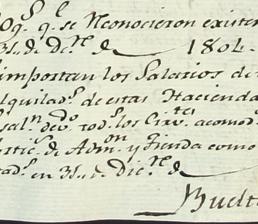 q.e se Reconocieron existen
31,, d. Diz.re d 1804.
importan los Salarios de
alquilad.s de estas Hacienda
sal.n dev.o tod.s los Sirv.tes acomod
de Adm.on y tienda como
en 31,, d. Dic.re d
Buelt